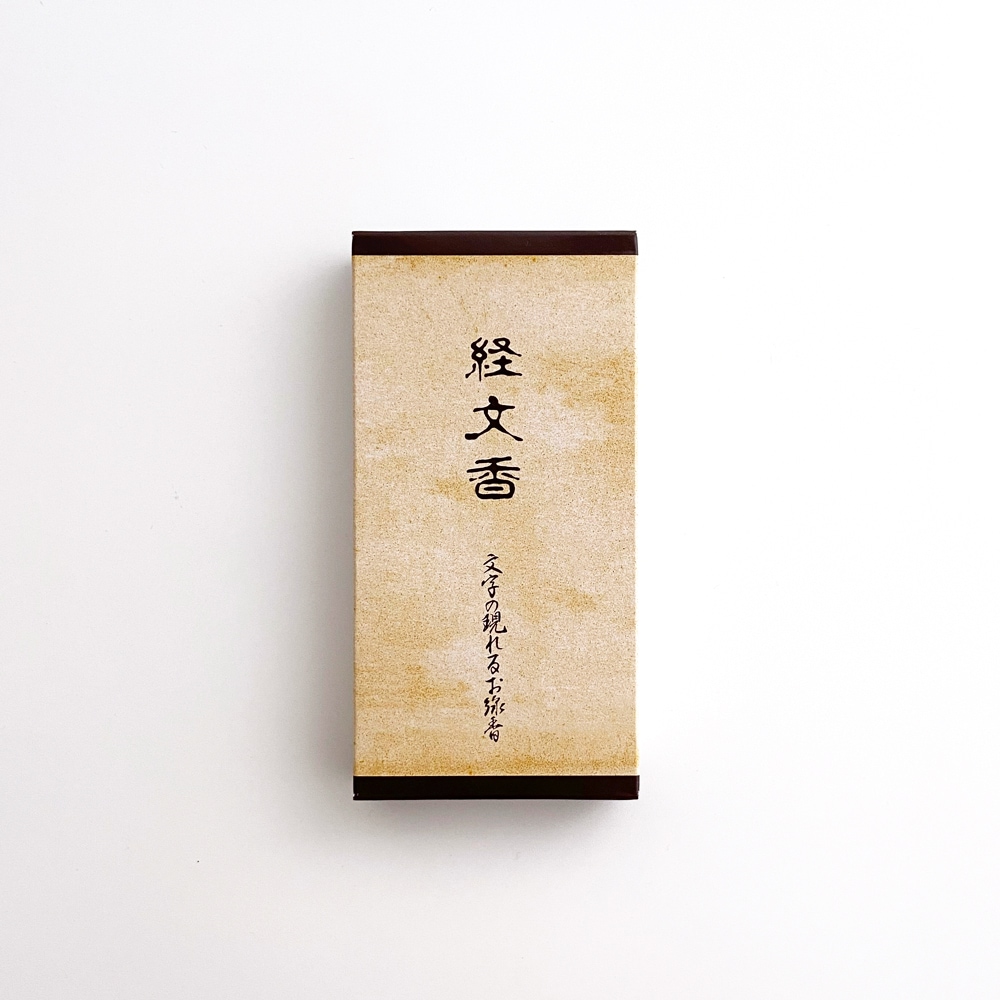 経文香
文字の現れるお線香